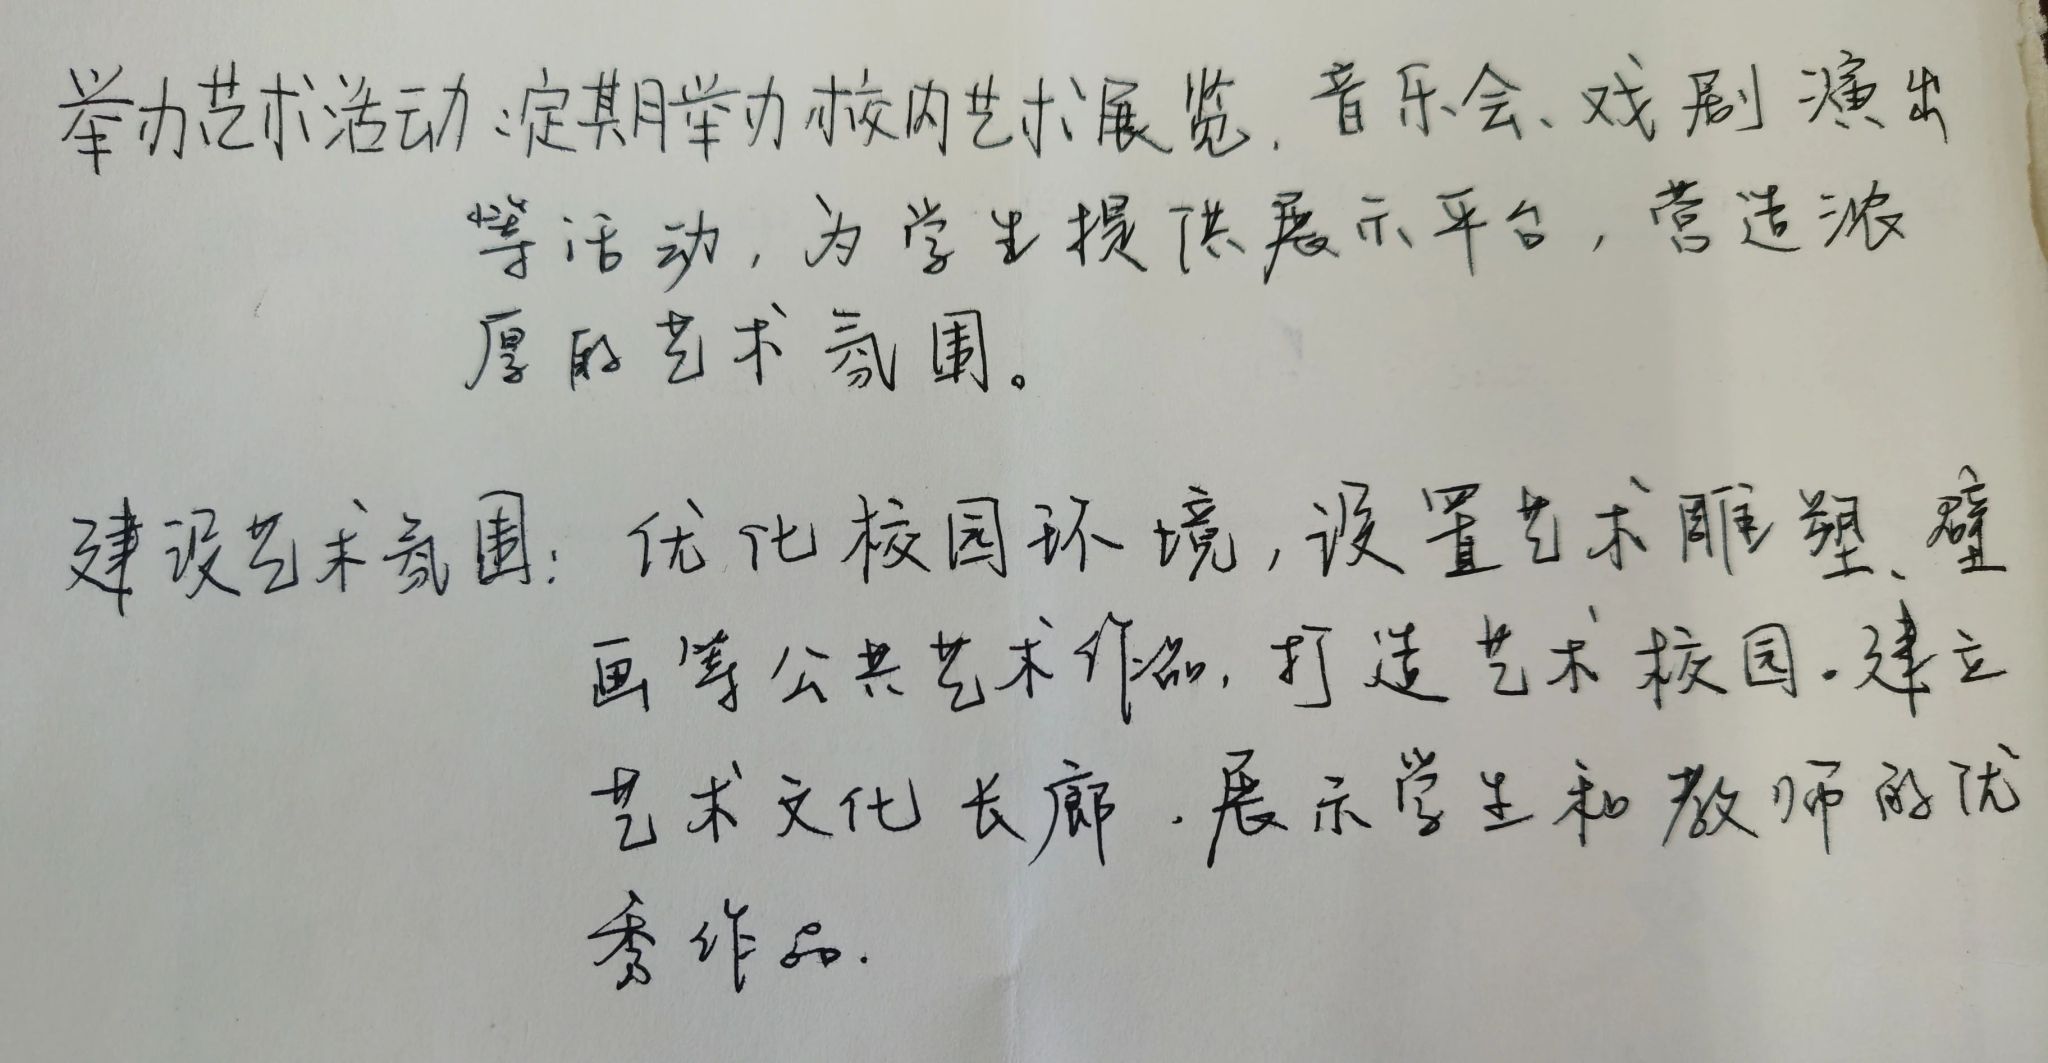 举办艺术活动:定期举办校内艺术展览、音乐会、戏剧演出
等活动,为学生提供展示平台,营造浓
厚的艺术氛围。
建设艺术氛围:优化校园环境,设置艺术雕塑、壁
画等公共艺术作品,打造艺术校园.建立
艺术文化长廊.展示学生和教师的优
秀作品.